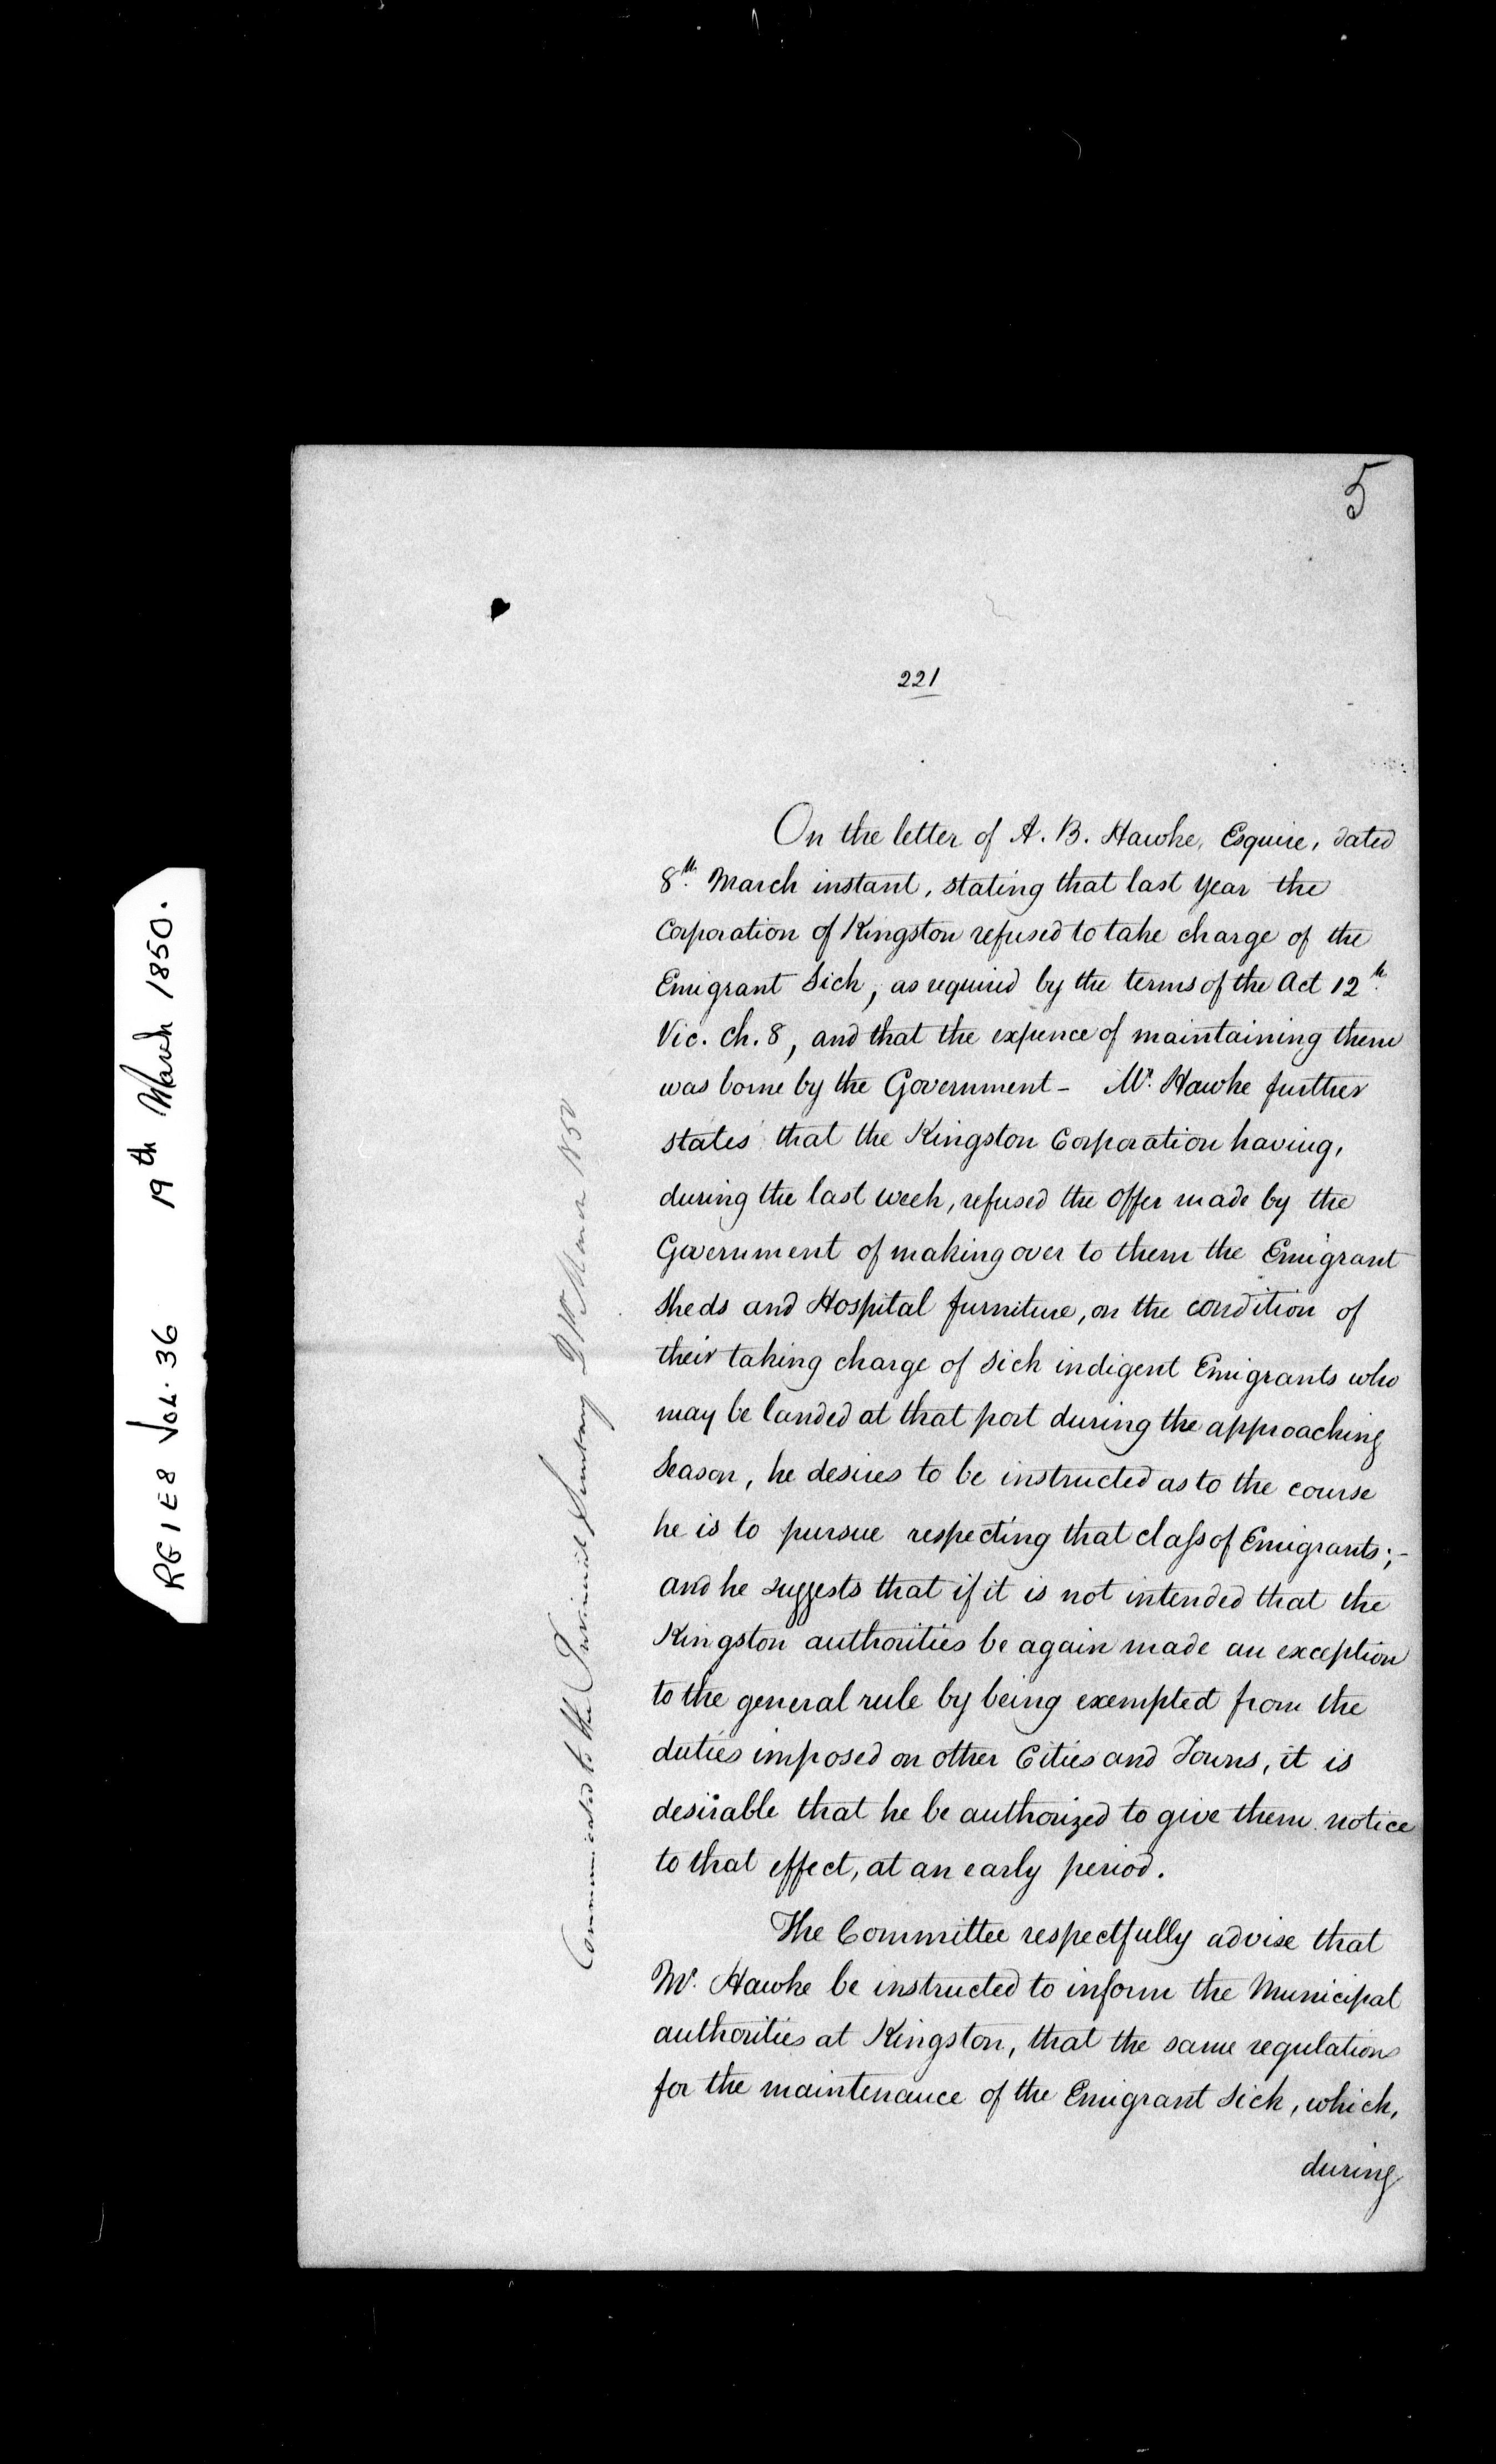 5
221
On the letter of A. B. Hawke, Esquire, dated
8th. March instant, stating that last year the
Corporation of Kingston refused to take charge of the
Emigrant Sick, as required by the terms of the Act 12th.
Vic. ch. 8, and that the expence of maintaining them
was borne by the Government - Mr. Hawke further
states that the Kingston Corporation having,
during the last week, refused the offer made by the
Government of making over to them the Emigrant
Sheds and Hospital furniture, on the condition of
their taking charge of sick indigent Emigrants who
may be landed at that port during the approaching
Season, he desires to be instructed as to the course
he is to pursue respecting that class of Emigrants;-
and he suggests that if it is not intended that the
Kingston authorities be again made an exception
to the general rule by being exempted from the
duties imposed on other Cities and Towns, it is
desirable that he be authorized to give them notice
to that effect, at an early period.
The Committee respectfully advise that
Mr. Hawke be instructed to inform the Municipal
authorities at Kingston, that the same regulations
for the maintenance of the Emigrant Sick, which,
during
Communicated to the Provincial Secretary 1850
RG 1 E8 Vol. 36 19th March 1850.